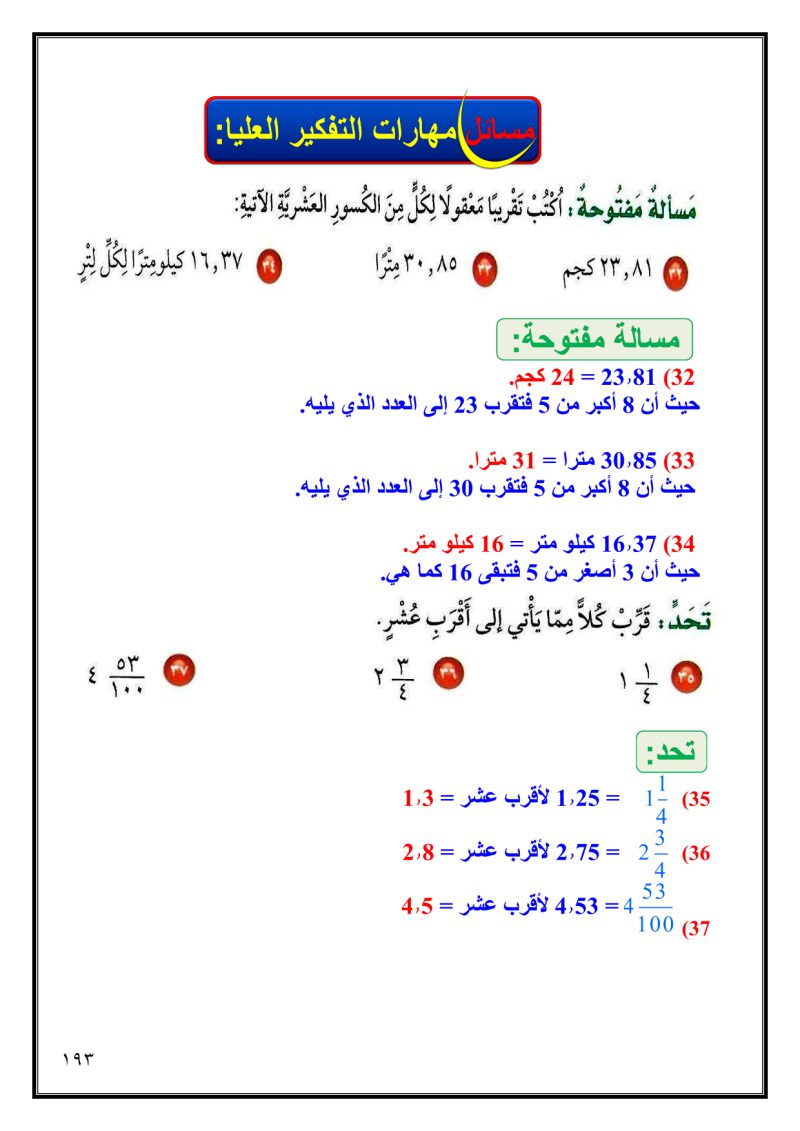 مسائل مهارات التفكير العليا:
مَسألةٌ مَفتُوحةٌ: اُكْتُبْ تَقْرِيبًا مَعْقولًا لِكُلٍّ مِنَ الكُسورِ العَشْريَّةِ الآتيةِ:
٣٢ ٢٣,٨١ كجم ٣٣ ٣٠,٨٥ مِتْرًا ٣٤ ١٦,٣٧ كيلومِترًا لِكُلِّ لِتْرٍ
مسالة مفتوحة:
32) 23٫81 = 24 كجم.
حيث أن 8 أكبر من 5 فتقرب 23 إلى العدد الذي يليه.
33) 30٫85 مترا = 31 مترا.
حيث أن 8 أكبر من 5 فتقرب 30 إلى العدد الذي يليه.
34) 16٫37 كيلو متر = 16 كيلو متر.
حيث أن 3 أصغر من 5 فتبقى 16 كما هي.
تَحَدٍّ: قَرِّبْ كُلاًّ مِمّا يَأْتي إلى أَقْرَبِ عُشْرٍ.
٣٥ ١ ١/٤ ٣٦ ٢ ٣/٤ ٣٧ ٤ ٥٣/١٠٠
تحد:
35) 1 1/4 = 1٫25 لأقرب عشر = 1٫3
36) 2 3/4 = 2٫75 لأقرب عشر = 2٫8
37) 4 53/100 = 4٫53 لأقرب عشر = 4٫5
١٩٣